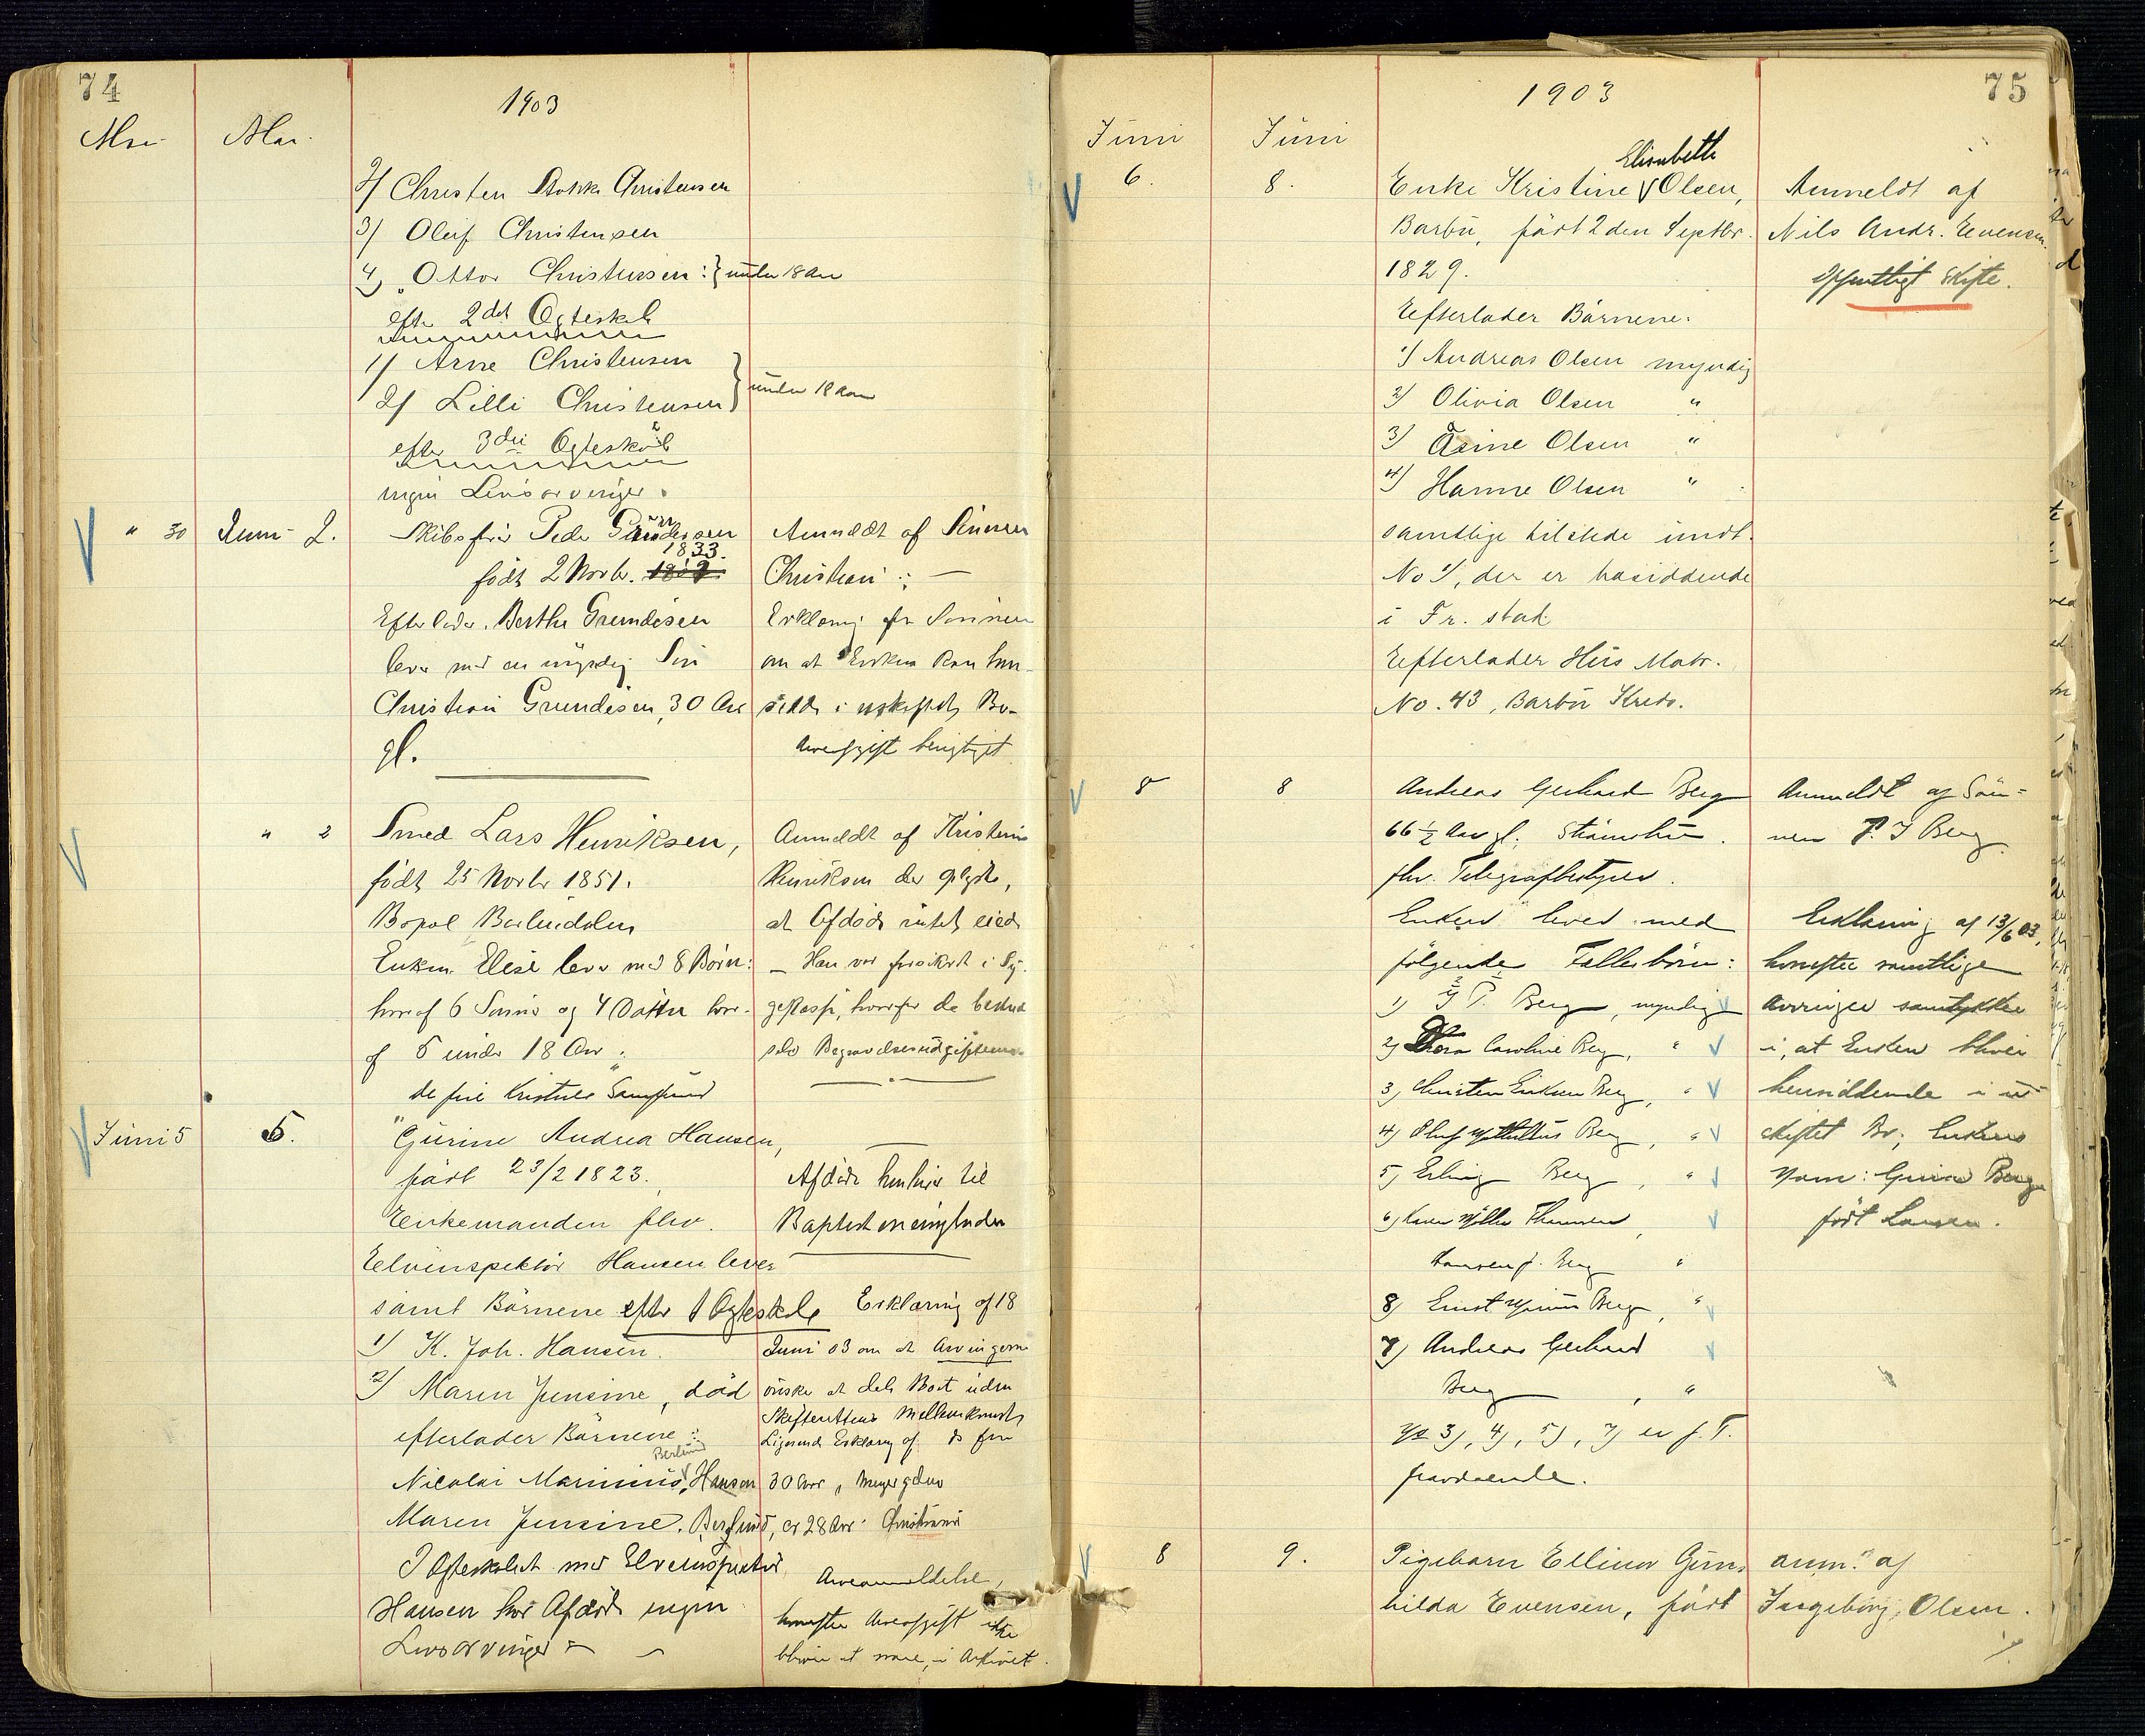 74
1903
Mai Mai
2) Christen Stokke Christensen
3) Oleif Christensen
4) Ottar Christensen : } under 18 Aar
efter 2det Ægteskab
1) Arne Christensen
2) Lilli Christensen } under 18 Aar
efter 3die Ægteskab
ingen Livsarvinger.
" 30 Juni 2. Skibsfører Peder Gundersen
født 2 Novbr. 1833.
Efterlader Berthe Gundersen
lever med en myndig Søn
Christian Gundersen, 30 Aar
gl.
Anmeldt af Sønnen
Christian :
Erklæring fra Sønnen
om at Enken kan hen-
sidde i uskiftet Bo -
Arveafgift berigtiget
" 2 Smed Lars Henriksen,
født 25 Novbr 1851.
Bopæl Barbudalen
Enken Elise lever med 8 Børn:
hvoraf 6 Sønner og 4 Døttre hvor-
af 5 under 18 Aar :
de frie Kristnes Samfund
Anmeldt af Kristine
Henriksen der oplyste,
at Afdøde intet eiede
- Han var forsikret i Sy-
gekasse, hvorfor de
selv Begravelsesudgifterne
Juni 5 5. Gurine Andrea Hansen,
født 23/2 1823.
Enkemanden fhv.
Elveinspektør Hansen lever
samt Børnene efter 1 Ægteskab
1) K. Joh. Hansen.
2) Maren Jensine, død
efterlader Børnene :
Berlund
Nicolai Marinius Hansen 30 Aar,
Maren Jensine Berglund, er 28 Aar Christiania
I Ægteskabet med Elveinspektør
Hansen har Afdøde ingen
Livsarvinger -
Afdøde henhører til
Baptistmenigheden
Erklæring af 18
Juni 03 om at Arvingerne
ønsker at dele Boet uden
Skifterettens Mellemkomst
Lignende Erklæring af
Arveanmeldelse,
hvorefter Arveafgift ikke
bliver at svare, i Arkivet.
75
1903
Juni Juni
6. 8. Enke Kristine Elisabeth Olsen,
Barbu, født 2den Septbr.
1829.
Efterlader Børnene:
1) Andreas Olsen myndig
2) Olivia Olsen "
3) Asine Olsen "
4) Hanne Olsen "
samtlige tilstede undt.
No 1, der er bosiddende
i Fr. stad
Efterlader Hus Matr.
No. 43, Barbu Kreds.
Anmeldt af
Nils Andr. Evensen.
Offentligt Skifte.
8 8 Andreas Gerhard Berg
66 ½ Aar gl. Strømsbu.
fhv. Telegrafbestyrer.
Enken lever med
følgende Fællesbørn:
1) Berg, myndig
2) Thora Caroline Berg, "
3) Christen Eriksen Berg, "
4) Oluf Berg, "
5) Erling Berg, "
6) Karen Møller
Hansen f. Berg "
8) Ernst Berg, "
7) Andreas Gerhard
Berg, "
No 3), 4), 5), 7) er f. T.
fraværende.
Anmeldt af Søn-
nen P. J Berg.
Erklæring af 13/6 03,
hvorefter samtlige
Arvinger samtykker
i, at Enken bliver
hensiddende i u-
skiftet Bo; Enkens
Navn: Berg
født Larsen.
8 9. Pigebarn Ellinor Gun-
hilda Evensen, født
anm. af
Ingeborg Olsen.